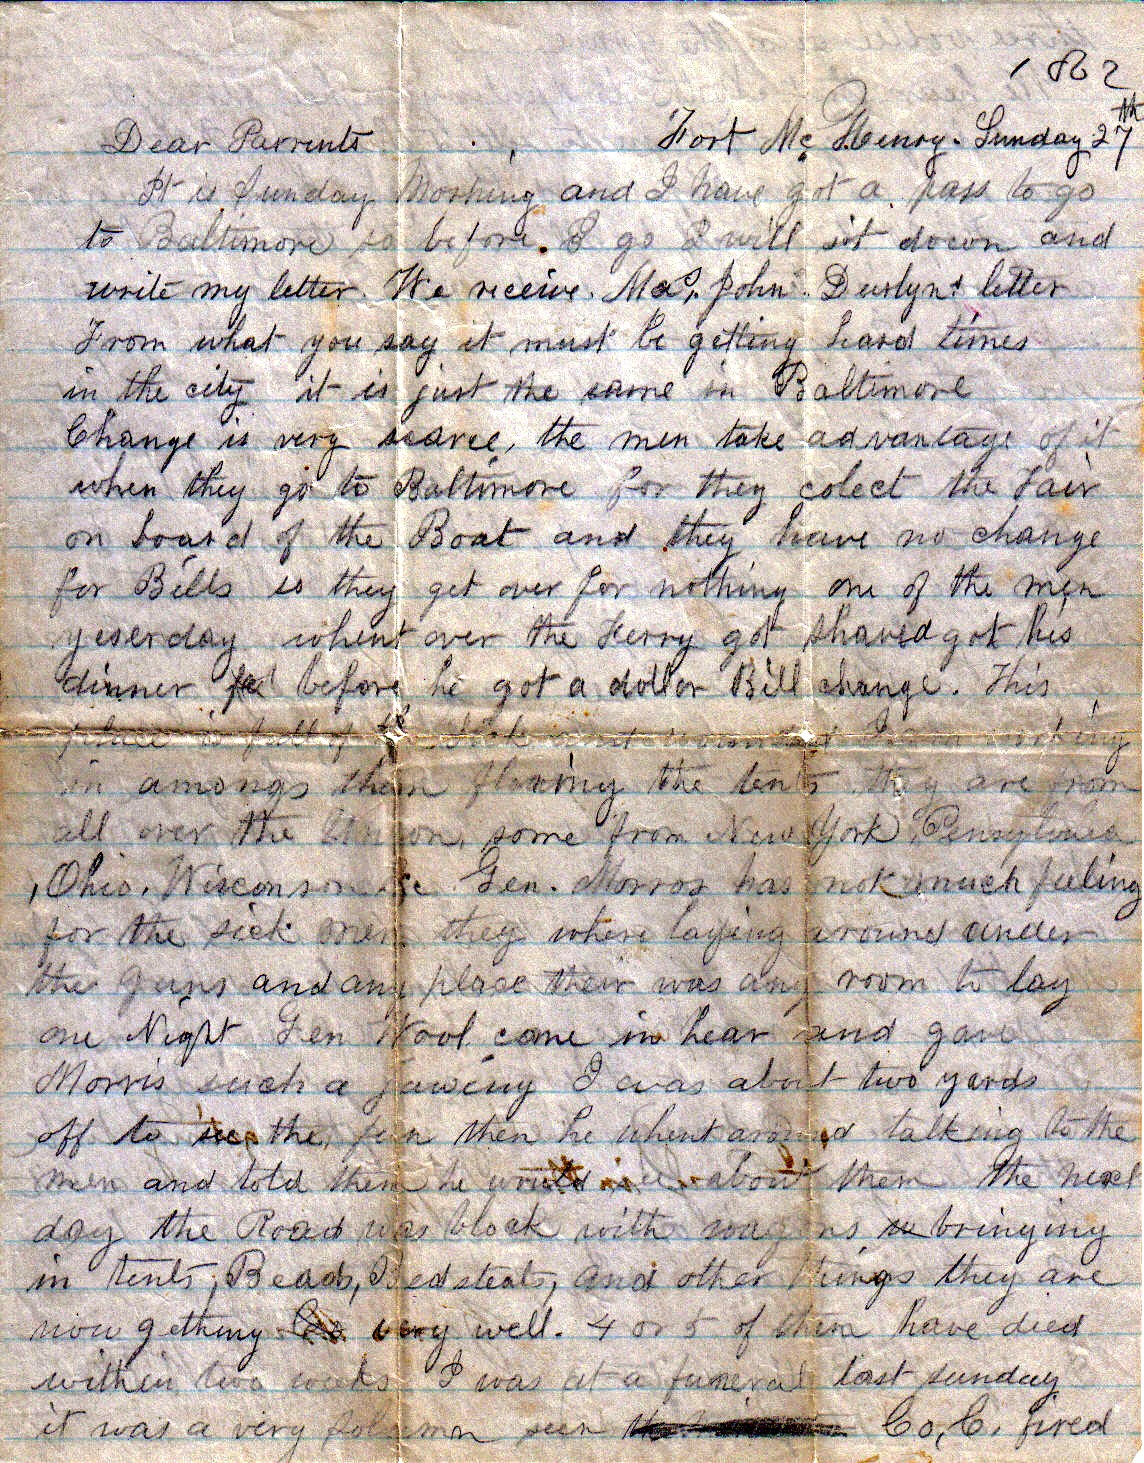 1862
Dear Parrents Fort Mc Henry. Sunday 27th
It is Sunday Morning and I have got a pass to go
to Baltimore so before I go I will sit down and
write my letter. We receive. Mas. John Devlyns letter
From what you say it must be getting hard times
in the city it is just the same in Baltimore
Change is very scarce, the men take advantage of it
when they go to Baltimore for they colect the Fair
on board of the Boat and they have no change
for Bills so they get over for nothing one of the men
yeserday whent over the Ferry got shaved got his
dinner before he got a dollar Bill change. This
place is full of the sick and wounded I am working
in amongs them flooring the tents they are from
all over the Union, some from New York Pensylvania
, Ohio, Wisconson &c. Gen. Morros has not much feeling
for the sick men they where laying around under
the guns and any place their was any room to lay
one Night Gen Wool come in hear and gave
Morris such a jawing I was about two yards
off to see the fun then he whent around talking to the
men and told them he would see about them the next
day the Road was block with wagons bringing
in tents, Beads, Bedsteats, and other things they are
now gething very well. 4 or 5 of them have died
within two weeks I was at a funeral last sunday
it was a very solemn seen Co, C. fired